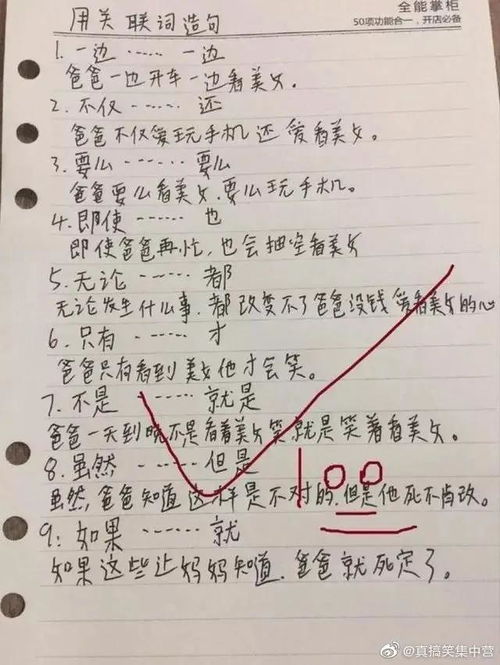 全能掌柜
50项功能合一，开店必备
用关联词造句
1. 一边 …… 一边
爸爸一边开车一边看美女。
2. 不仅 …… 还
爸爸不仅爱玩手机还爱看美女。
3. 要么 …… 要么
爸爸要么看美女，要么玩手机。
4. 即使 …… 也
即使爸爸再忙，也会抽空看美女
5. 无论 …… 都
无论发生什么事，都改变不了爸爸没钱爱看美女的心
6. 只有 …… 才
爸爸只有看到美女他才会笑。
7. 不是 …… 就是
爸爸一天到晚不是看着美女笑就是笑着看美女。
8. 虽然 …… 但是
虽然，爸爸知道这样是不对的，但是他死不肯改。
100
9: 如果 …… 就
如果这些让妈妈知道，爸爸就死定了。
@真搞笑集中营